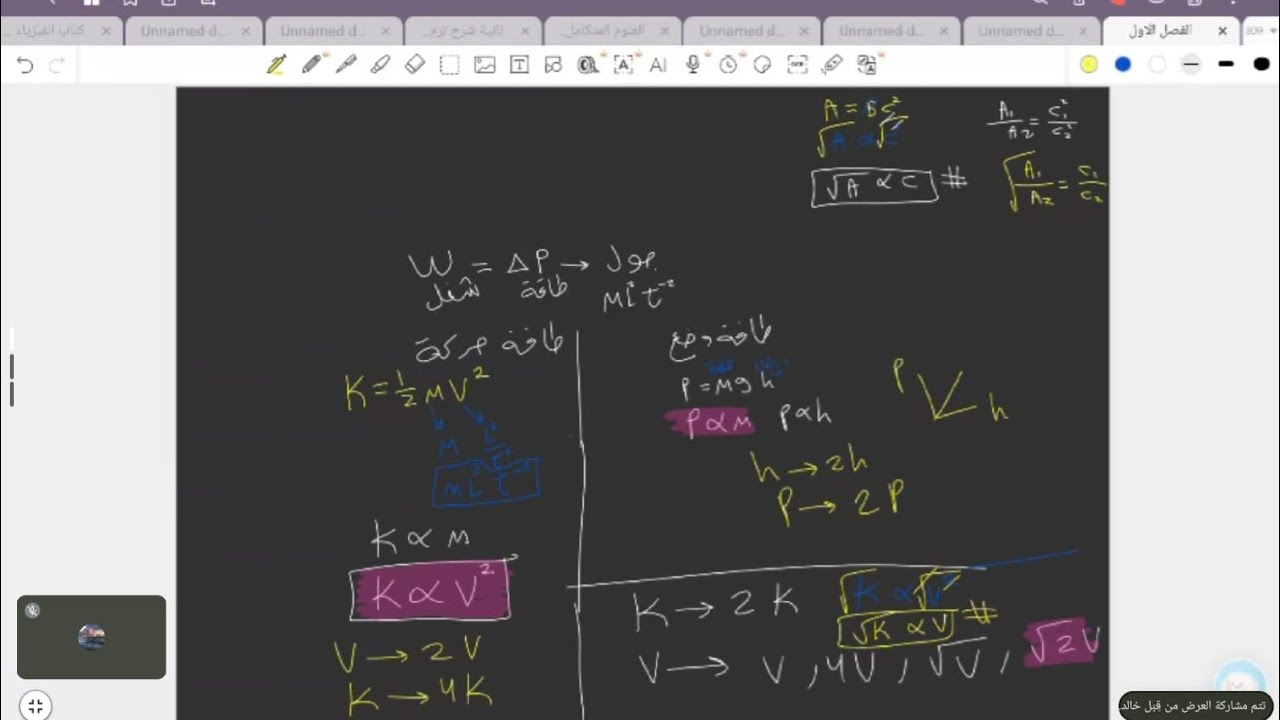 كتاب الفيزياء ..
Unnamed d...
Unnamed d...
ثانية شرح ترم...
العلوم المتكامل...
Unnamed d...
Unnamed d...
Unnamed d...
الفصل الاول
309
A = B C²
√A α √C²
√A α C #
A₁/A₂ = C₁²/C₂²
√A₁/A₂ = C₁/C₂
W = ΔP → جول
شغل طاقة ML²t⁻²
طاقة حركة
K = 1/2 M V²
M L²/t²
ML²t⁻²
K α M
K α V²
V → 2V
K → 4K
طاقة وضع
P = M g h
P α M P α h
P h
h → 2h
P → 2P
K → 2K
√K α √V²
√K α V #
V → V , 4V , √V , √2 V
تتم مشاركة العرض من قبل خالد